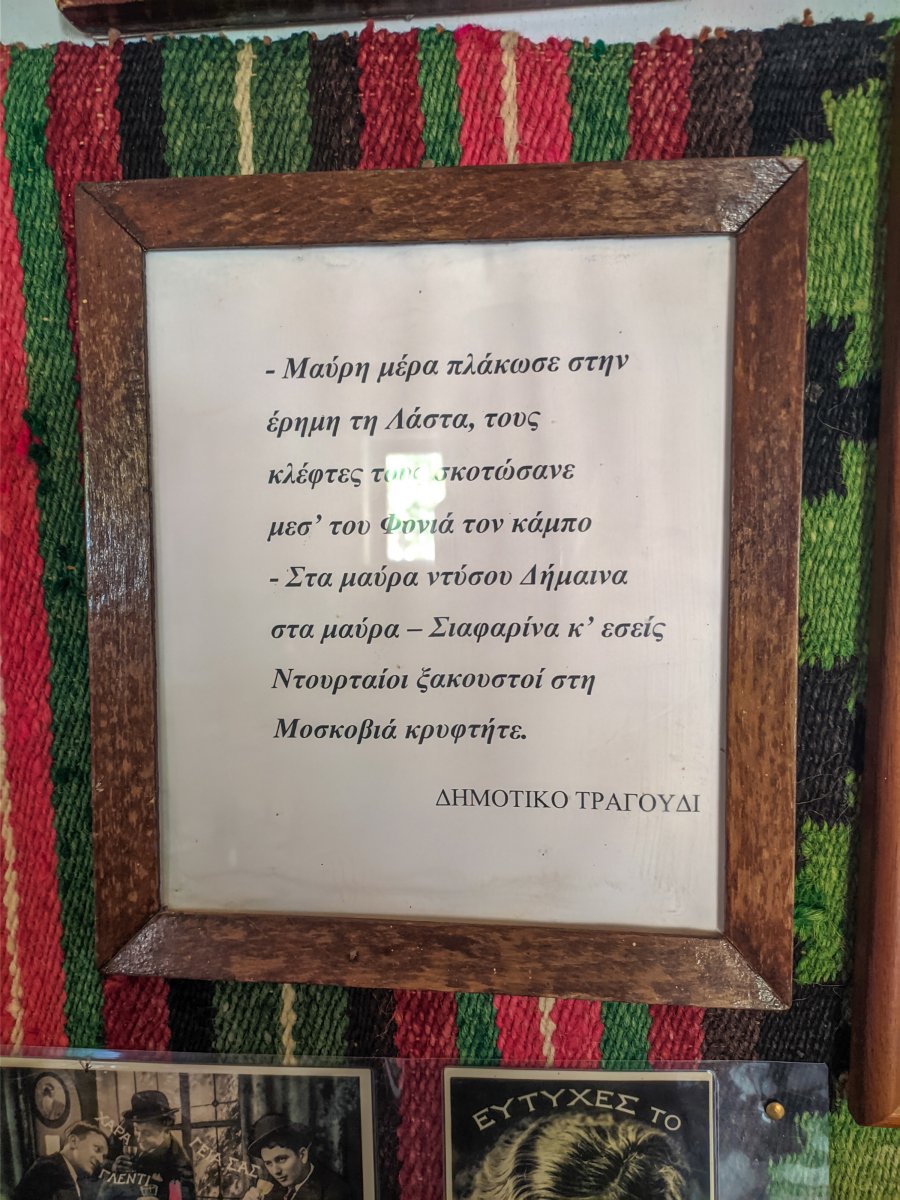 - Μαύρη μέρα πλάκωσε στην
έρημη τη Λάστα, τους
κλέφτες τους σκοτώσανε
μεσ’ του Φονιά τον κάμπο
- Στα μαύρα ντύσου Δήμαινα
στα μαύρα – Σιαφαρίνα κ’ εσείς
Ντουρταίοι ξακουστοί στη
Μοσκοβιά κρυφτήτε.
ΔΗΜΟΤΙΚΟ ΤΡΑΓΟΥΔΙ
ΧΑΡΑ
ΓΛΕΝΤΙ
ΓΕΙΑ ΣΑΣ
ΕΥΤΥΧΕΣ ΤΟ